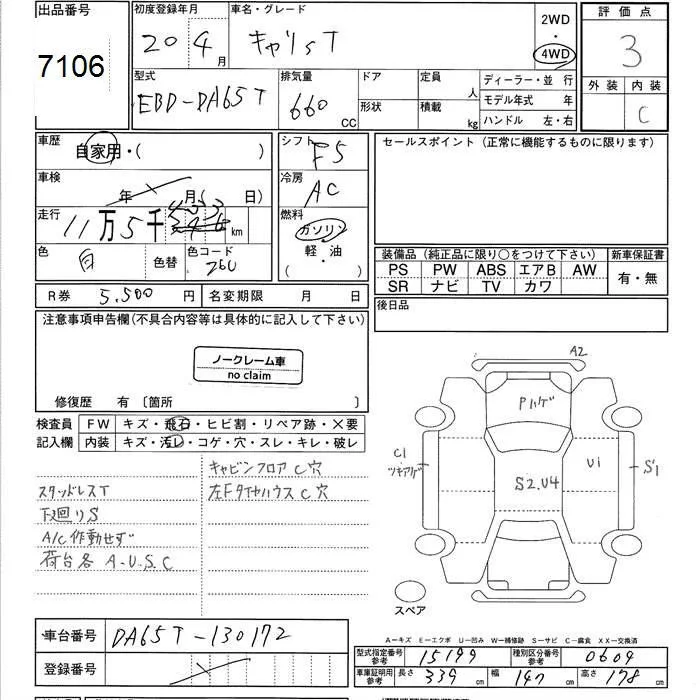 出品番号
7106
初度登録年月
20 4月
車名・グレード
キャリイT
2WD
・
4WD
評価点
3
外装 内装
C
型式
EBD-DA65T
排気量
660 CC
ドア
形状
定員 人
積載 kg
ディーラー・並行
モデル年式 年
ハンドル 左・右
車歴
自家用・( )
車検
年 月( 日)
走行
11万5千 km
色
白
色替
色コード
26U
シフト
F5
冷房
AC
燃料
ガソリン
軽・油
( )
セールスポイント(正常に機能するものに限ります)
装備品(純正品に限り○をつけて下さい)
新車保証書
PS PW ABS エアB AW
SR ナビ TV カワ
有・無
後日品
R券 5,500円
名変期限 月 日
注意事項申告欄(不具合内容等は具体的に記入して下さい)
ノークレーム車
no claim
修復歴 有〔箇所 〕
検査員
記入欄
FW キズ・飛石・ヒビ割・リペア跡・×要
内装 キズ・汚レ・コゲ・穴・スレ・キレ・破レ
キャビンフロア C穴
スタッドレスT
左Fタイヤハウス C穴
下廻りS
A/C作動せず
荷台各 A.U.S.C
A2
Pハゲ
C1
ツキアゲ
S2.U4
U1
S1
スペア
A-キズ E-エクボ U-凹み W-補修跡 S-サビ C-腐食 XX-交換済
車台番号
DA65T-130172
登録番号
型式指定番号
参考
15199
種別区分番号
参考
0604
車庫証明用
参考
長さ 339 cm
幅 147 cm
高さ 178 cm